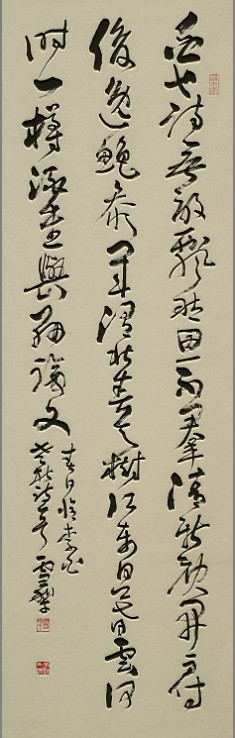 白也詩無敵飄然思不羣清新庾開府
俊逸鮑參軍渭北春天樹江東日暮雲何
時一樽酒重與細論文
春日憶李白